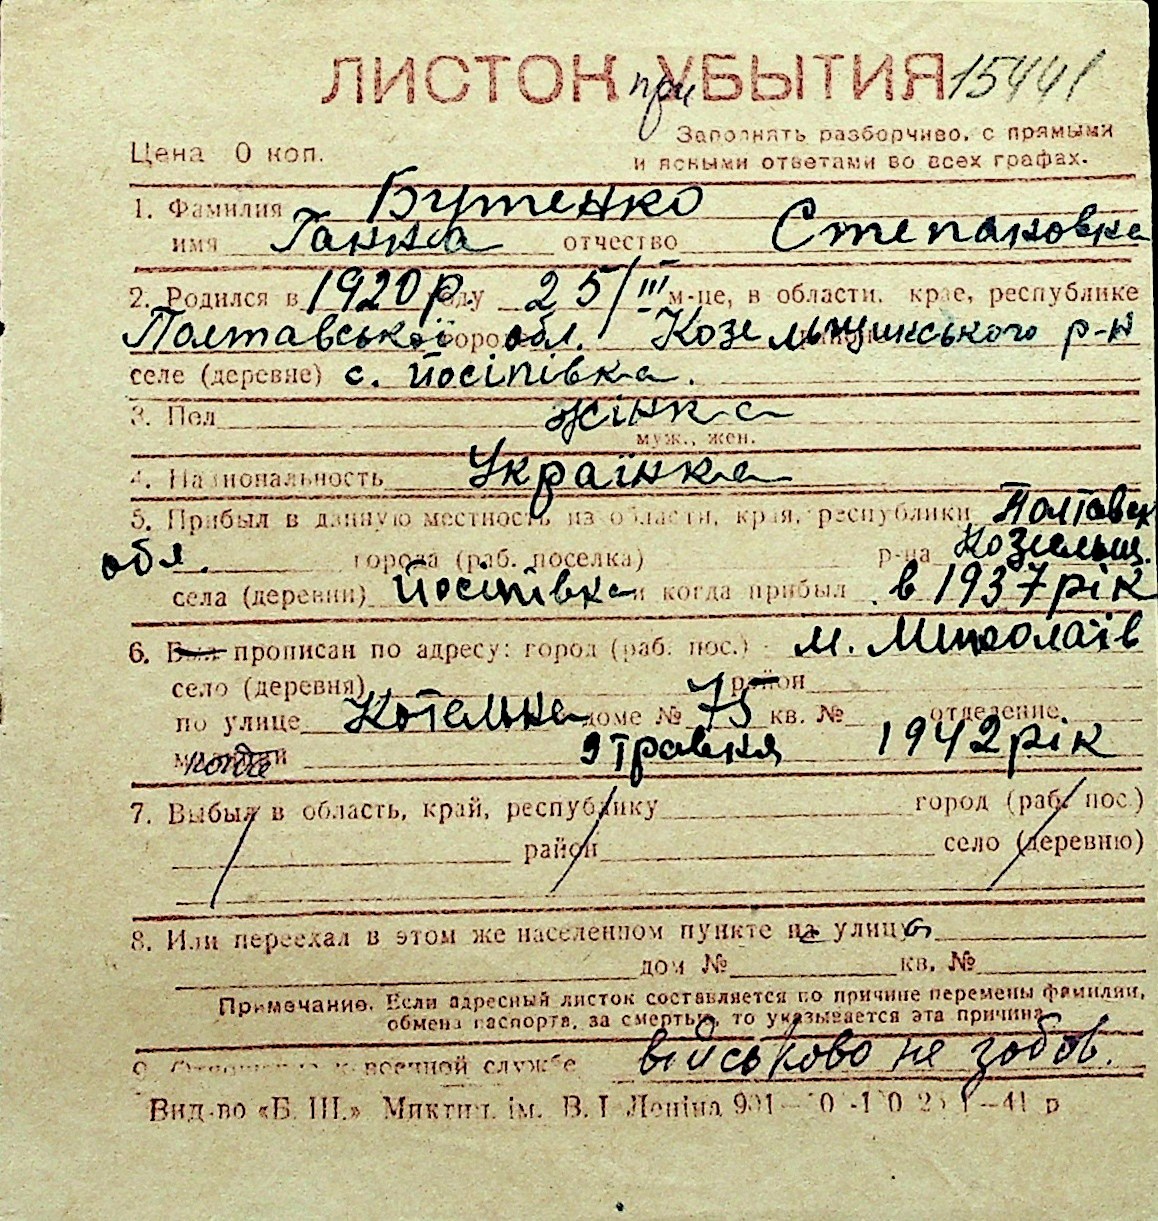 ЛИСТОК при УБЫТИЯ 15441
Цена 0 коп.
Заполнять разборчиво, с прямыми
и ясными ответами во всех графах.
1. Фамилия Бутенко
имя Ганна отчество Степановна
2. Родился в 1920 р. году 25/III м-це, в области, крае, республике
Полтавської обл. Козельщинського р-н
селе (деревне) с. Йосіпівка.
3. Пол жінка
муж., жен.
4. Национальность Українка
5. Прибыл в данную местность из области, края, республики Полтавск
обл. города (раб. поселка) р-на Козельщ.
села (деревни) Йосіпівка и когда прибыл в 1937 рік
6. Был прописан по адресу: город (раб. пос.) м. Миколаїв
село (деревня) район
по улице Котельна доме № 75 кв. № отделение
когда 9 травня 1942 рік
7. Выбыл в область, край, республику город (раб. пос.)
район село (деревню)
8. Или переехал в этом же населенном пункте на улицу
дом № кв. №
Примечание. Если адресный листок составляется по причине перемены фамилии,
обмена паспорта, за смертью, то указывается эта причина
9. Отношение к военной службе військово не зобов.
Вид-во «Б. Ш.» Миктип. ім. В. І Леніна